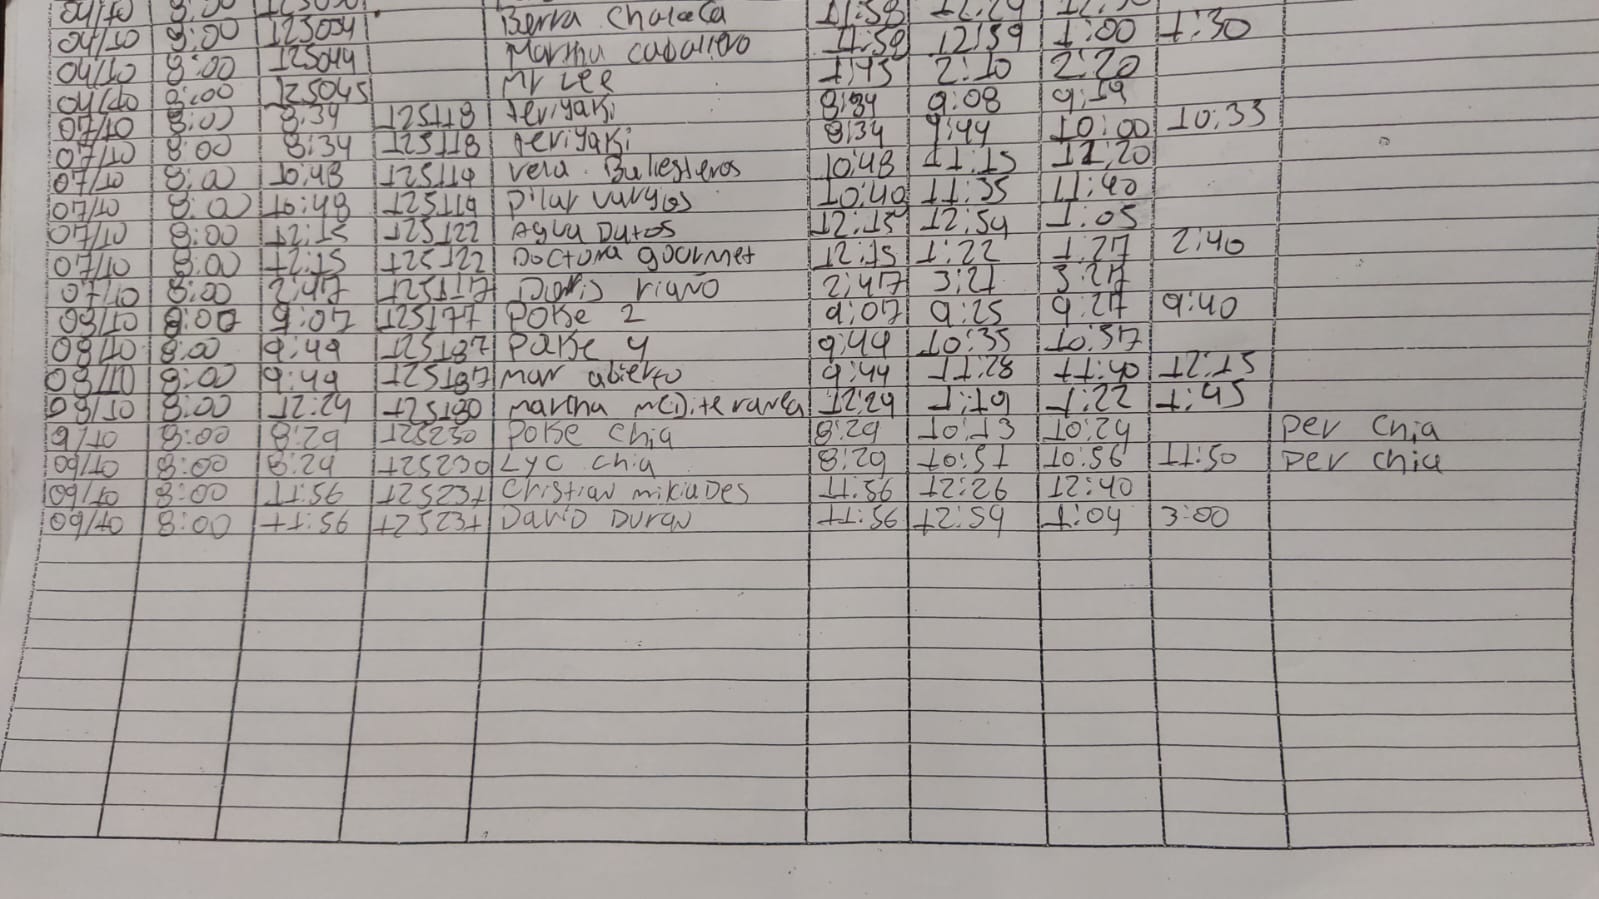 04/10 8:00 125034 Berra Chalaca 11:58 12:29
04/10 8:00 125034 Martha caballero 11:58 12:59 1:00 1:30
04/10 8:00 125044 Mr Lee 1:45 2:10 2:20
04/10 8:00 125045
07/10 8:00 8:34 125118 teriyaki 8:34 9:08 9:19
07/10 8:00 8:34 125118 teriyaki 8:34 9:44 10:00 10:33
07/10 8:00 10:48 125119 vera Ballesteros 10:48 11:15 11:20
07/10 8:00 10:48 125119 pilar vargas 10:48 11:35 11:40
07/10 8:00 12:15 125122 Agua Dutos 12:15 12:54 1:05
07/10 8:00 12:15 125122 Doctora gourmet 12:15 1:22 1:27 2:40
07/10 8:00 2:47 125117 Doris riaño 2:47 3:21 3:27
08/10 8:00 9:07 125177 Poke 2 9:07 9:25 9:27 9:40
08/10 8:00 9:49 125187 Poke 4 9:49 10:35 10:37
08/10 8:00 9:49 125187 mar abierto 9:49 11:28 11:40 12:15
08/10 8:00 12:29 125180 martha mediteranea 12:29 1:19 1:22 1:45
9/10 8:00 8:29 125230 Poke chia 8:29 10:13 10:24 per chia
09/10 8:00 8:29 125230 LYC chia 8:29 10:51 10:56 11:50 per chia
09/10 8:00 11:56 125231 Cristian mikiades 11:56 12:26 12:40
09/10 8:00 11:56 125231 David Duran 11:56 12:59 1:04 3:00